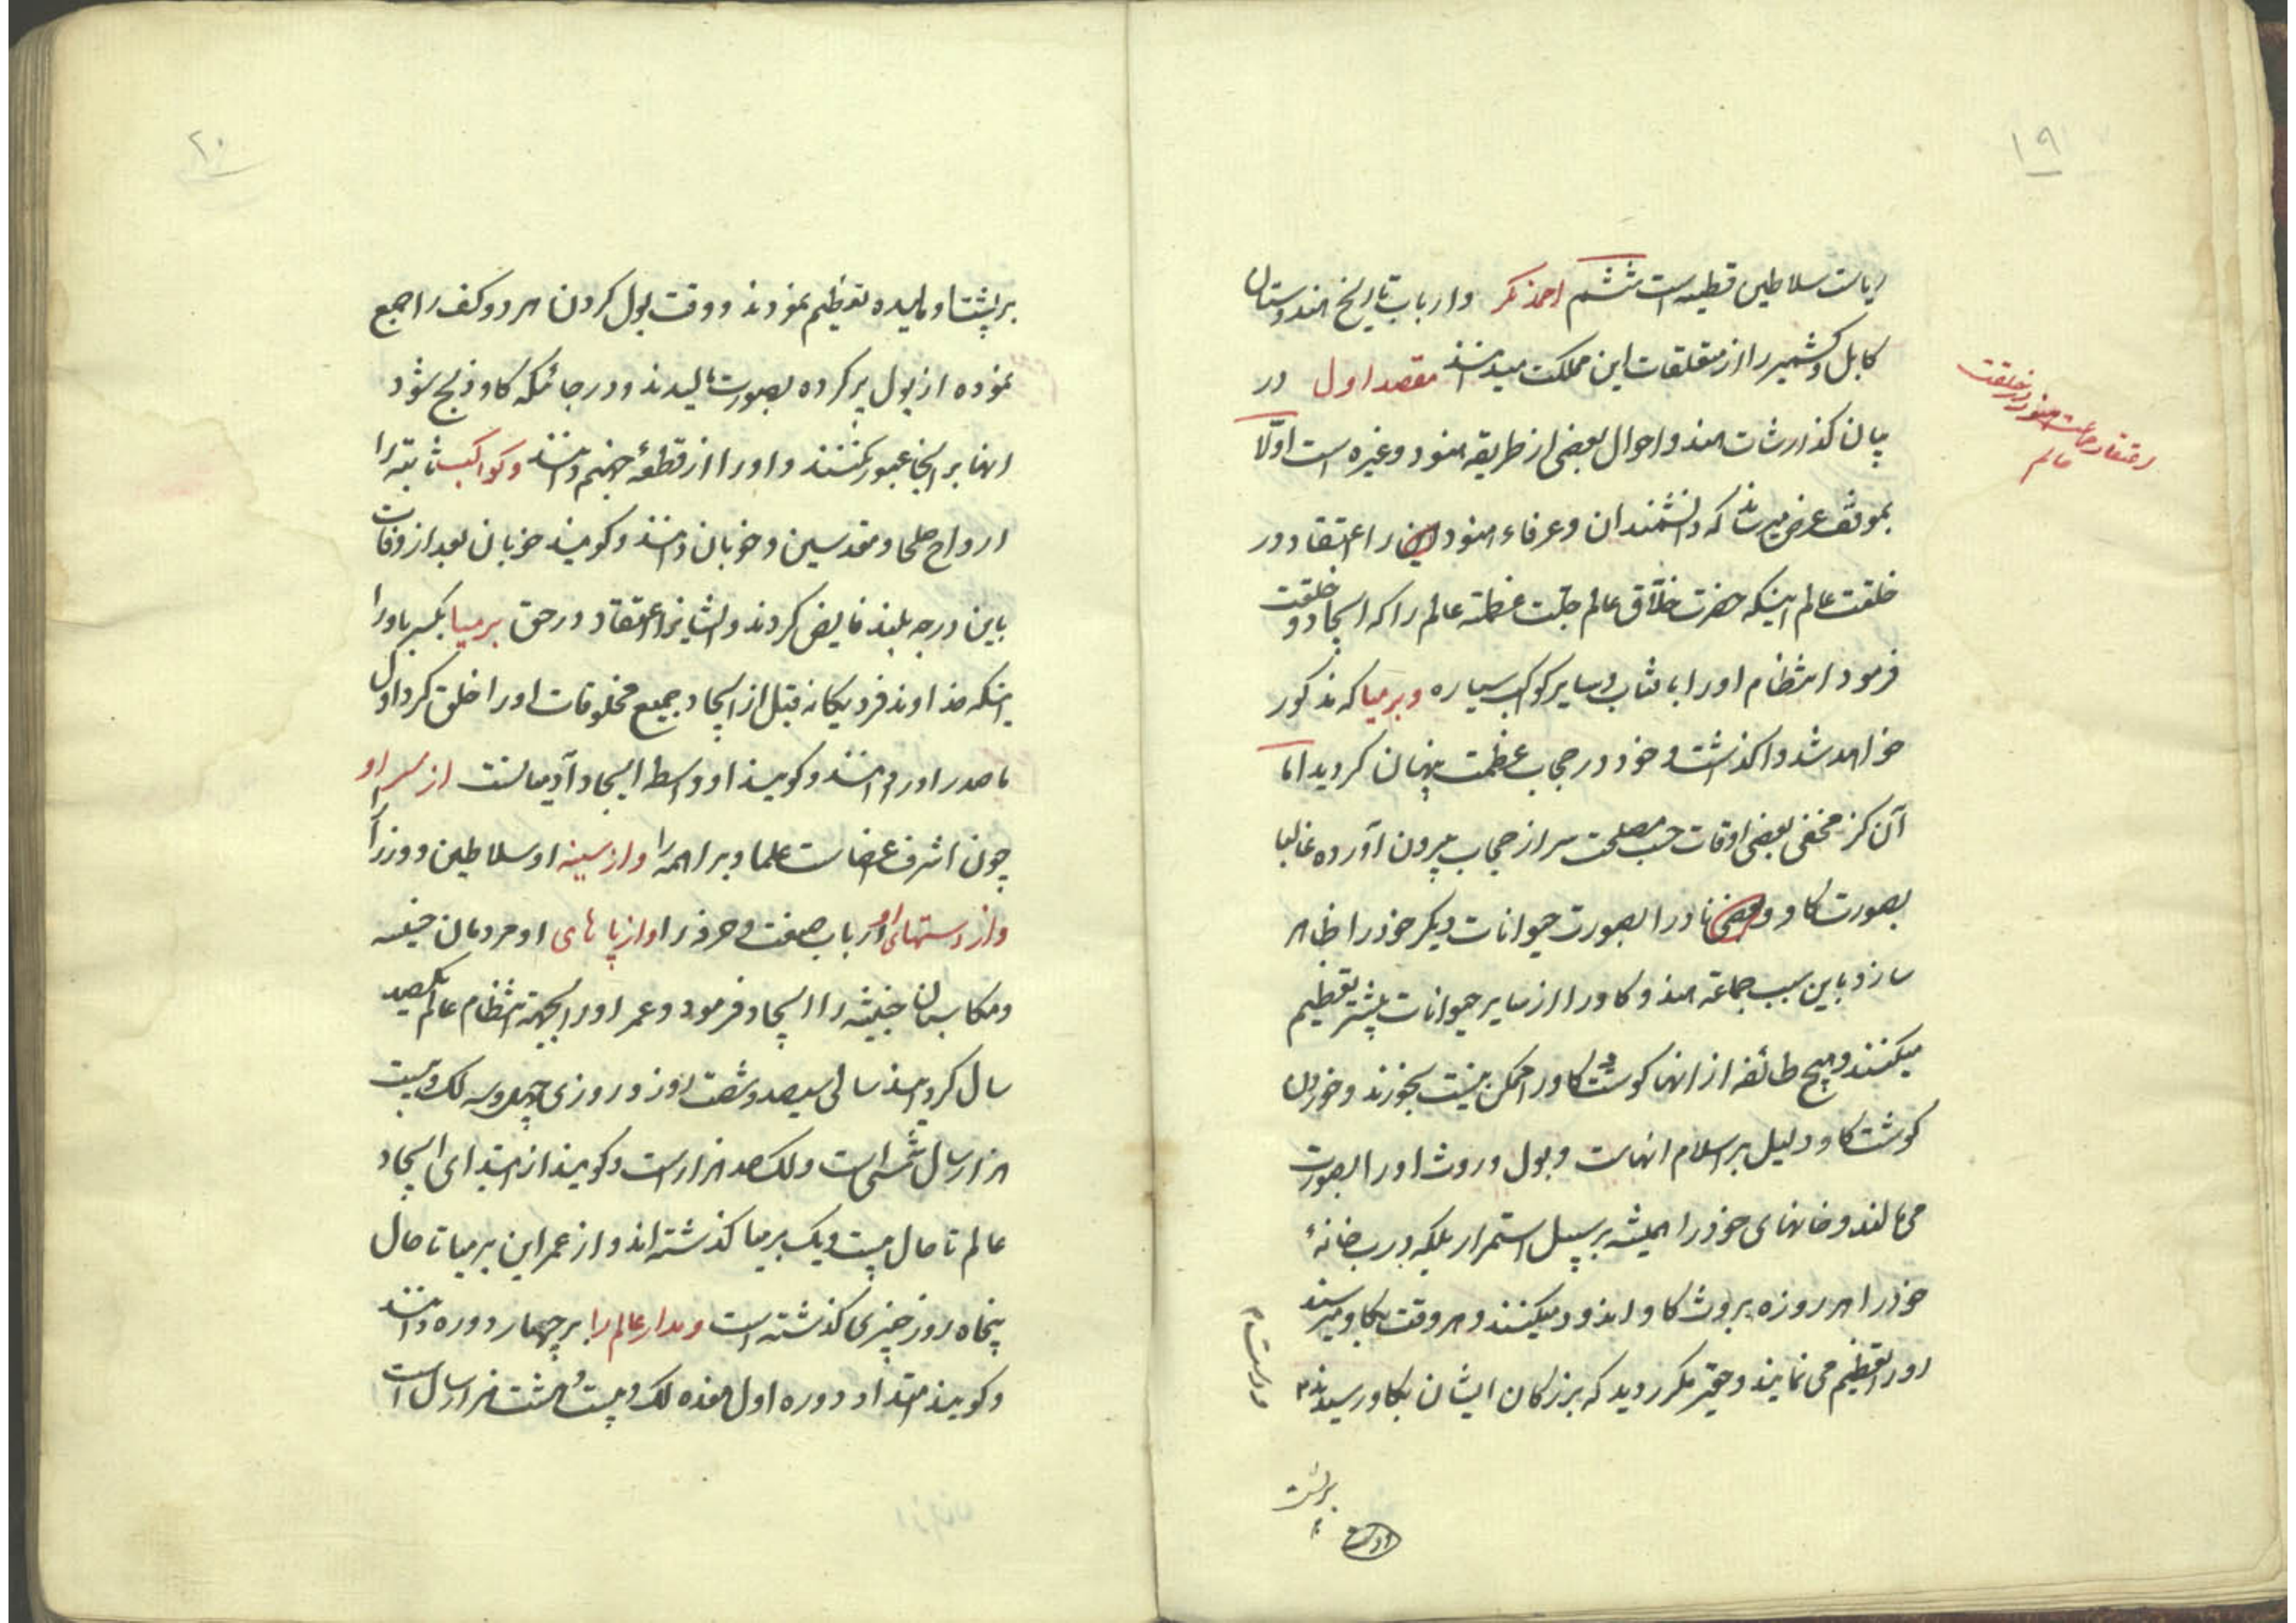 ۱۹
ریاست سلاطین قطبیه است ششم احمدنکر و ارباب تاریخ هندوستان
کابل و کشمیر را از متعلقات این مملکت میدانند مقصد اول در
بیان کذارشات هند و احوال بعضی از طریقه هنود و غیره است اوّلا
بموقف عرض میرساند که دانشمندان و عرفاء هنود را اعتقاد در
خلقت عالم اینکه حضرت خلاّق عالم جلّت عظمته عالم را که ایجاد و خلقت
فرمود انتظام او را بافتاب و سایر کواکب سیاره و برمیا که مذکور
خواهد شد واکذاشت و خود در حجاب عظمت پنهان کردید امّا
آن کنز مخفی بعضی اوقات حسب مصلحت سر از حجاب بیرون آورده غالبا
بصورت کاو و بعضی نادرا بصورت حیوانات دیکر خود را ظاهر
سازد باین سبب جماعة هنود کاو را از سایر حیوانات بیشتر تعظیم
میکنند و هیچ طائفه از انها کوشت کاو را ممکن نیست بخورند و خوردن
کوشت کاو دلیل بر اسلام انهاست و بول و روث او را بصورت
می مالند و خانهای خود را همیشه بر سبیل استمرار بلکه درب خانۀ
خود را هر روزه بروث کاو اندود میکنند و هر وقت بکاو میرسند
او را تعظیم می نمایند و حقیر مکرر دید که بزرکان ایشان بکاو رسیدند
برپشت
اعتقاد جماعت هنود در خلقت
عالم
۲۰
برپشت او مالیده تعظیم نمودند و وقت بول کردن هر دو کف را جمع
نموده از بول پر کرده بصورت مالیدند و در جائیکه کاو ذبح شود
انها بر انجا عبور نکنند و او را از قطعۀ جهنم دانند و کواکب ثابته را
ارواح صلحا و مقدسین و خوبان دانند و کویند خوبان بعد از وفات
باین درجه بلند فایض کردند و ایشانرا اعتقاد در حق برمیا بکسر با و را
اینکه خداوند فرد یکانه قبل از ایجاد جمیع مخلوقات او را خلق کرد و اول
ما صدر او را دانند و کویند او واسطۀ ایجاد آدمیانست از سر او
چون اشرف اعضاست علما و براهمه را و از سینه او سلاطین و وزرا را
و از دستهای او ارباب صنعت و حرفه را و از پاهای او مردمان خفیفه
و مکاسبان خبیثه را ایجاد فرمود و عمر او را بجهة انتظام عالم یکصد
سال کردانید سالی سیصد و شصت روز و روزی چهل و سه لک و بیست
هزار سال شمسی است و لک صد هزار است و کویند از ابتدای ایجاد
عالم تا حال بیست و یک برمیا کذشته اند و از عمر این برمیا تا حال
پنجاه روز چیزی کذشته است و مدار عالم را بر چهار دوره دانند
و کویند امتداد دوره اول هفده لک و بیست و هشت هزار سال است